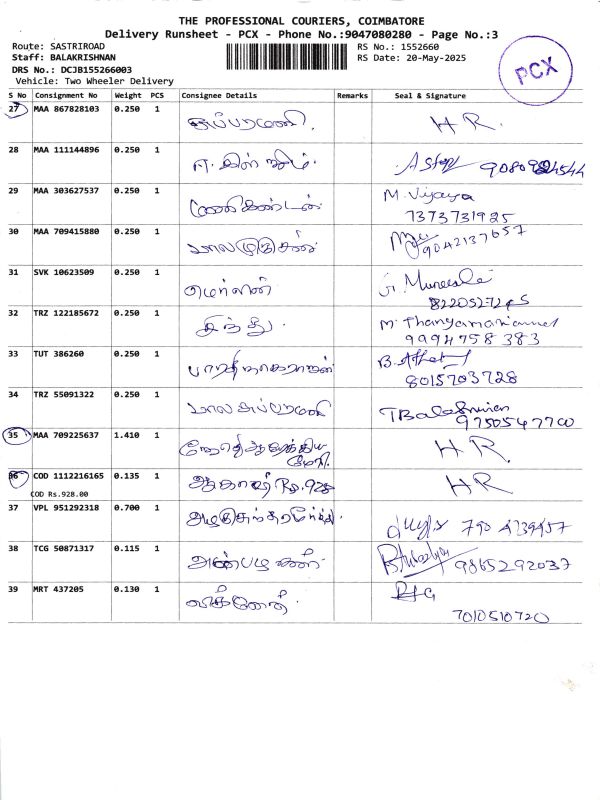 THE PROFESSIONAL COURIERS, COIMBATORE
Delivery Runsheet - PCX - Phone No.:9047080280 - Page No.:3
Route: SASTRIROAD
RS No.: 1552660
Staff: BALAKRISHNAN
RS Date: 20-May-2025
DRS No.: DCJB155266003
Vehicle: Two Wheeler Delivery
PCX
S No Consignment No Weight PCS Consignee Details Remarks Seal & Signature
27 MAA 867828103 0.250 1 சுப்பரமணி. H R.
28 MAA 111144896 0.250 1
29 MAA 303627537 0.250 1 மணிகண்டன். M. Vijaya
7373731925
30 MAA 709415880 0.250 1 பாலமுருகன்
9042137657
31 SVK 10623509 0.250 1
32 TRZ 122185672 0.250 1 சிந்து.
9994758383
33 TUT 386260 0.250 1 பாரதிநாகராஜன்
8015703728
34 TRZ 55091322 0.250 1 பாலசுப்பரமணி
9750547700
35 MAA 709225637 1.410 1 மேரி. H R.
36 COD 1112216165 0.135 1 ஆகாஷ் Rs.928 HR
COD Rs.928.00
37 VPL 951292318 0.700 1 790 4739457
38 TCG 50871317 0.115 1 அன்பழகன். 9865292037
39 MRT 437205 0.130 1 விக்னேஷ்
7010510720